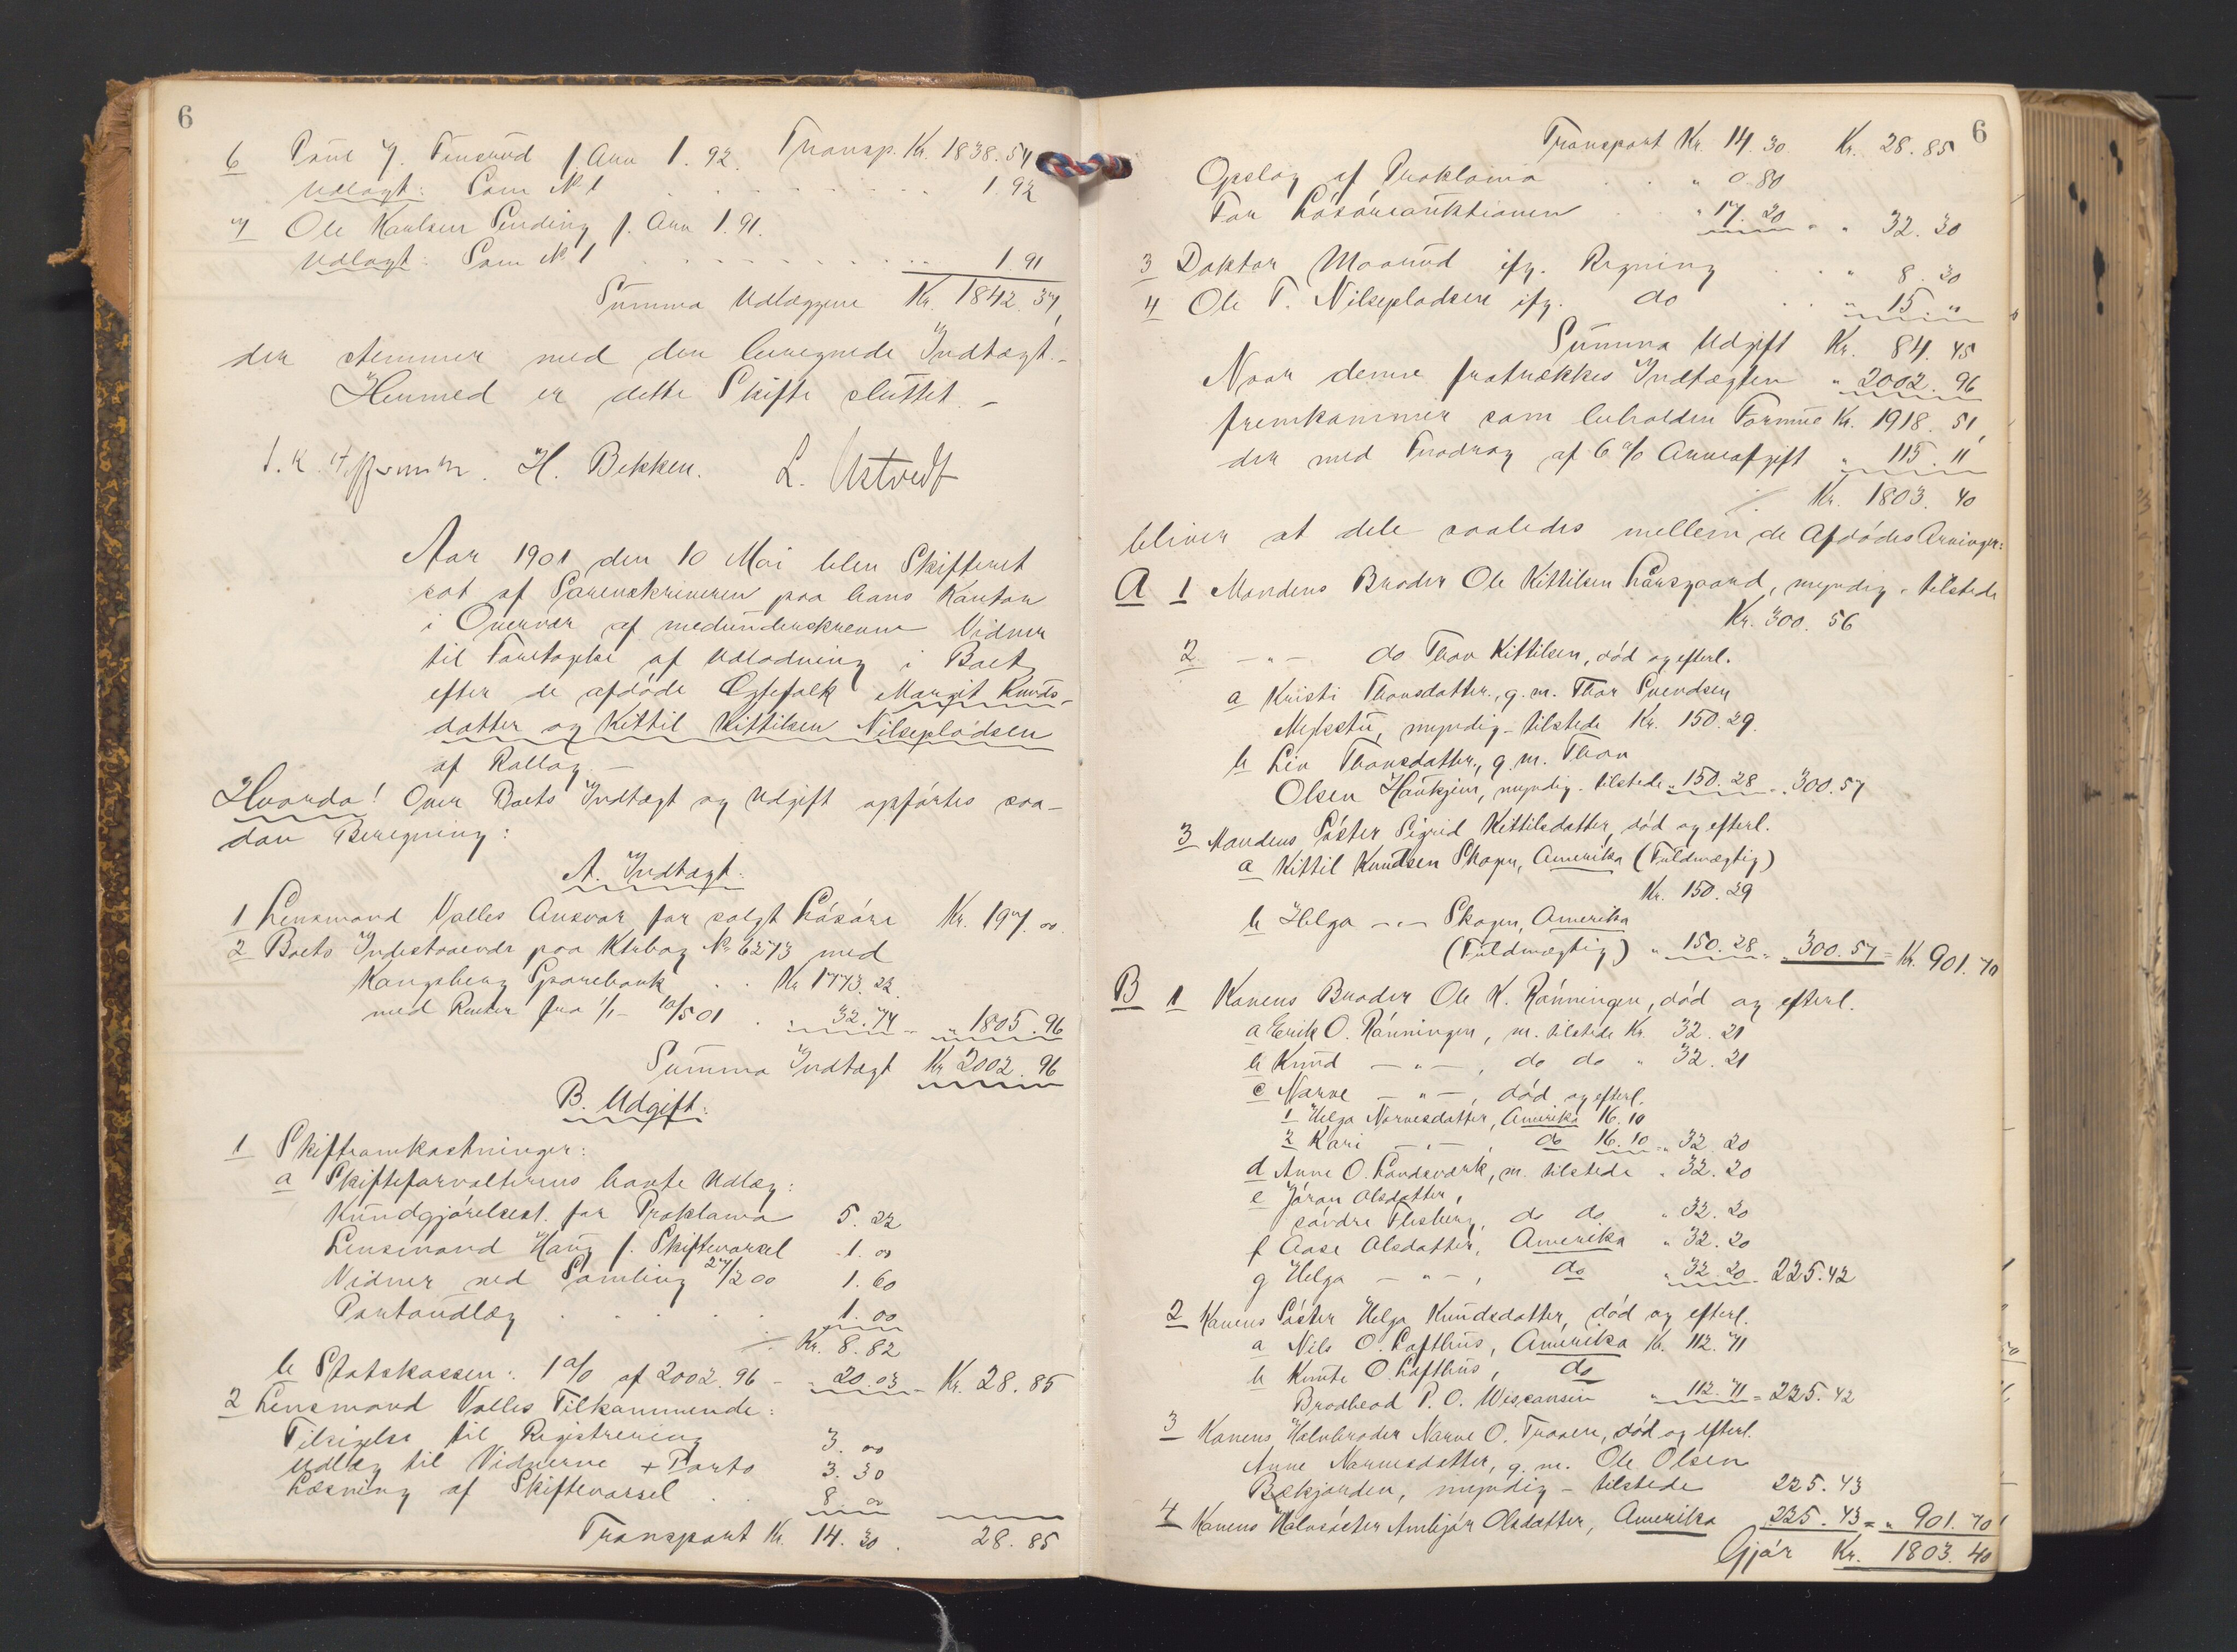 6
6 Paul J. Funsrud f. Aur 1.92. Transp. Kr. 1838.54
Udlagt: Som No 1 . . . 1.92
7 Ole Knutsen Sending f. Aur 1.91.
Udlagt: Som No 1 . . . 1.91
Summa Udlæggene Kr. 1842.37,
der stemmer med den beregnede Indtægt. –
Hermed er dette Skifte sluttet. –
H. Bekken. L. Ustvedt
Aar 1901 den 10 Mai blev Skifteret
sat af Sorenskriveren paa hans Kontor
i Overvær af medunderskrevne Vidner
til Foretagelse af Udlodning i Boet
efter de afdøde Egtefolk Margit Knuds-
datter og Kittil Kittilsen Nilsepladsen
af Rollag. –
Hvorda! Over Boets Indtægt og Udgift opførtes saa-
dan Beregning:
A. Indtægt:
1 Lensmand Valles Ansvar for solgt Løsøre Kr. 197.00.
2 Boets Indestaaende paa Ktrbog No 6273 med
Kongsberg Sparebank . . Kr 1773.22.
med Renter fra 1/1 – 10/5 01 . " 32.74 – " 1805.96
Summa Indtægt Kr 2002.96
B. Udgift:
1 Skifteomkostninger:
a Skifteforvalterens havte Udlæg:
Kundgjørelsest. for Proklama 5.22
Lensmand Haug f. Skiftevarsel 1.00
Vidner ved Samling 27/2 00 1.60
Portoudlæg . . . . . 1.00
Kr. 8.82
b Statskassen: 1 % af 2002.96 – " 20.03 – Kr. 28.85
2 Lensmand Valles Tilkommende:
Tilsigelse til Registrering 3.00
Udlæg til Vidnerne + Porto 3.30
Læsning af Skiftevarsel . . 8.00
Transport Kr. 14.30. 28.85
6
Transport Kr. 14.30 Kr. 28.85
Opslag af Proklama . . " 0.80
For Løsøreauktionen . . " 17.20 " " 32.30
3 Doktor Moorud ifg. Regning . . " 8.30
4 Ole T. Nilsepladsen ifg. do . . " 15."
Summa Udgift Kr. 84.45
Naar denne fratrækkes Indtægten " 2002.96
fremkommer som beholden Formue Kr. 1918.51,
der med Fradrag af 6 % Arveafgift " 115.11
Kr. 1803.40
bliver at dele saaledes mellem de Afdødes Arvinger:
A 1 Mandens Broder Ole Kittilsen Laasgaard, myndig – tilstede
Kr. 300.56
2 – " – do Thov Kittilsen, død og efterl.
a Kristi Thovsdatter, g. m. Thor Svendsen
Myksstu, myndig – tilstede Kr. 150.29.
b Liv Thovsdatter, g. m. Thov
Olsen Haukjem, myndig – tilstede " 150.28 " 300.57
3 Mandens Søster Sigrid Kittilsdatter, død og efterl.
a Kittil Knudsen Skogen, Amerika (Fuldmægtig)
Kr. 150.29
b Helga – " – Skogen, Amerika
(Fuldmægtig) " 150.28 " 300.57 = Kr. 901.70
B 1 Konens Broder Ole K. Rønningen, død og efterl.
a Erik O. Rønningen, m. tilstede Kr. 32.21
b Knud – " –, do do " 32.21
c Narve – " –, død og efterl.
1 Helga Narvesdatter, Amerika 16.10
2 Kari – " –, do 16.10 " 32.20
d Anne O. Landsværk, m. tilstede " 32.20
e Jøran Olsdatter,
søndre Flesberg, do do " 32.20
f Aase Olsdatter, Amerika " 32.20
g Helga – " –, do " 32.20 225.42
2 Konens Søster Helga Knudsdatter, død og efterl.
a Nils O. Lofthus, Amerika Kr. 112.71
b Knute O. Lofthus, do
Brodhead P. O. Wisconsin " 112.71 = 225.42
3 Konens Halvbroder Narve O. Traaen, død og efterl.
Anne Narvesdatter, g. m. Ole Olsen
Bekjorden, myndig – tilstede 225.43
4 Konens Halvsøster Ambjør Olsdatter, Amerika 225.43 = " 901.70
Gjør Kr. 1803.40